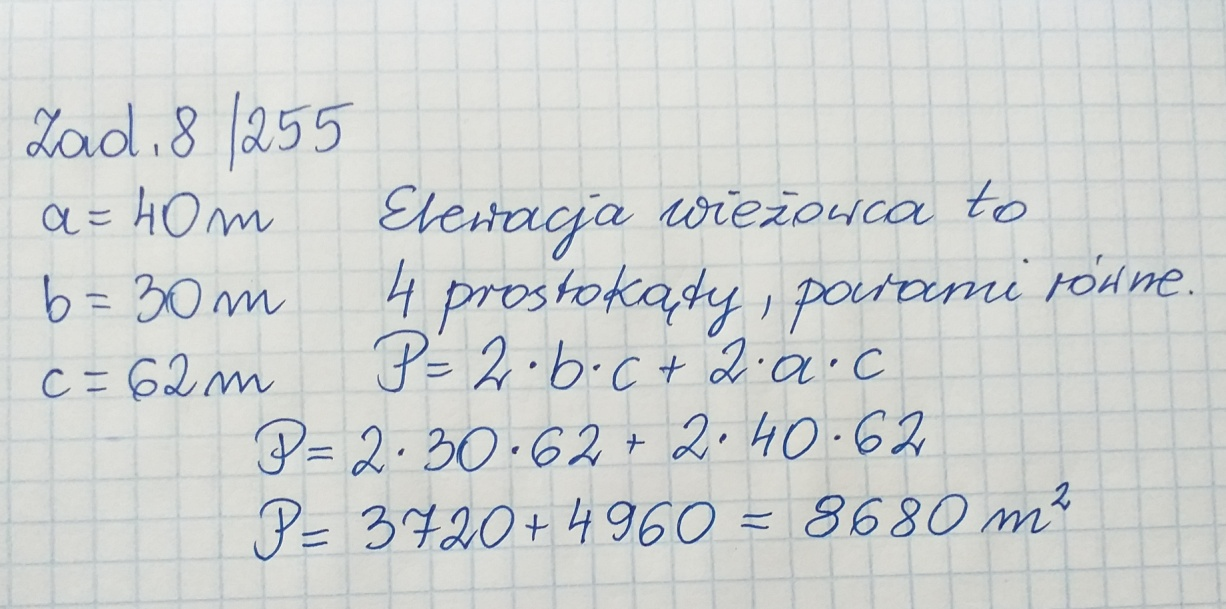 Zad. 8 /255
a = 40 m Elewacja wieżowca to
b = 30 m 4 prostokąty, parami równe.
c = 62 m P = 2 · b · c + 2 · a · c
P = 2 · 30 · 62 + 2 · 40 · 62
P = 3720 + 4960 = 8680 m²